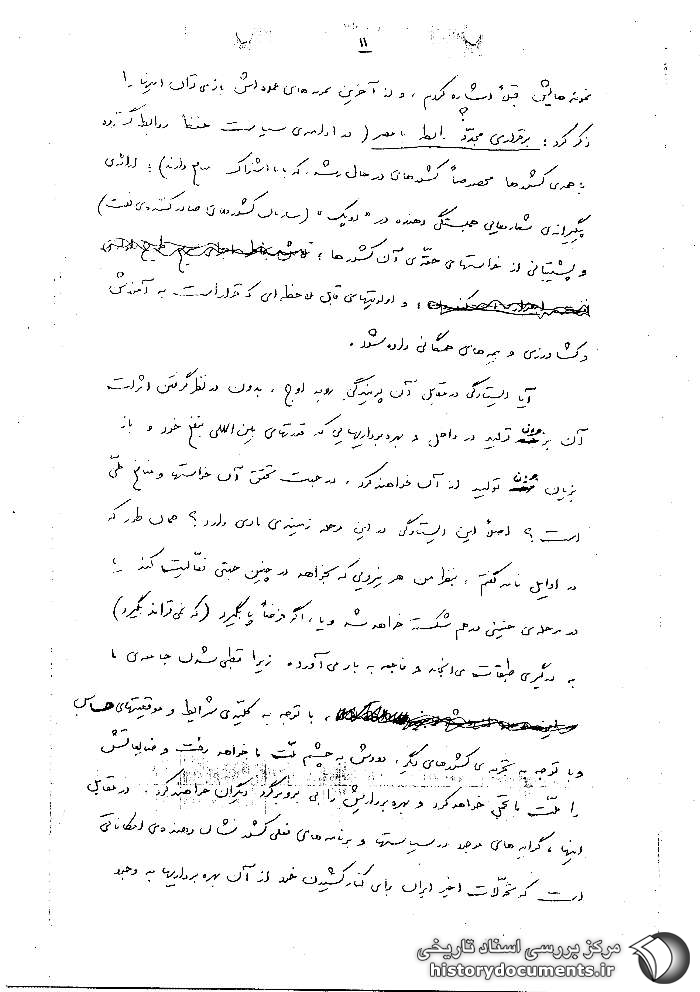 ۱۱
نمونه هایش قبلاً اشاره کردم، و از آخرین نمونه های عمده اش بازی توان اینها را
ذکر کرد: برقراری مجدّد رابطه با مصر (در ادامه‌ی سیاست حفظ روابط گسترده
با همه‌ی کشورها مخصوصاً کشورهای در حال رشد، که با ما اشتراک منافع دارند)؛
پیگیرانه‌ی شعارهای همبستگی دهنده در "اوپک" (سازمان کشورهای صادرکننده‌ی نفت)
و پشتیبانی از خواستهای حقّه‌ی آن کشورها؛
و اولویتهای قابل ملاحظه‌ای که قرار است به آموزش
و کشاورزی و بیمه های همگانی داده شود.
آیا ایستادگی در مقابل آن پدیدگی رو به اوج، بدون در نظر گرفتن اثرات
آن بر تولید در داخل و بهره برداریهایی که قدرتهای بین المللی بنفع خود و باز
بزیان تولید از آن خواهند کرد، در جهت تحقق آن خواستها و منافع ملّی
است؟ اصلاً این ایستادگی در این مرحله زمینه‌ی مادی دارد؟ همان طور که
در اوایل نامه گفتم، بنظر من هر نیرویی که بخواهد در چنین جهتی فعّالیت کند یا
در مرحله‌ی جنینی درهم شکسته خواهد شد و یا، اگر فرضاً پا بگیرد (که نمی تواند بگیرد)
به درگیری طبقات می انجامد و فاجعه به بار می آورد، زیرا قطبی شدن جامعه‌ی ما
، با توجه به کلیّه‌ی شرایط و موقعیتهای حساس
و با توجه به تجربه‌ی کشورهای دیگر، دودش به چشم ملّت ما خواهد رفت و ضایعاتش
را ملّت ما تحمّل خواهد کرد و بهره بردارایش را بی بروبرگرد دیگران خواهند کرد. در مقابل
اینها، گرایه های موجود در سیاستها و برنامه های فعلی کشور نشان دهنده‌ی امکاناتی
است که تحوّلات اخیر ایران برای کنار کشیدن خود از آن بهره برداریها به وجود
مرکز بررسی اسناد تاریخی
historydocuments.ir